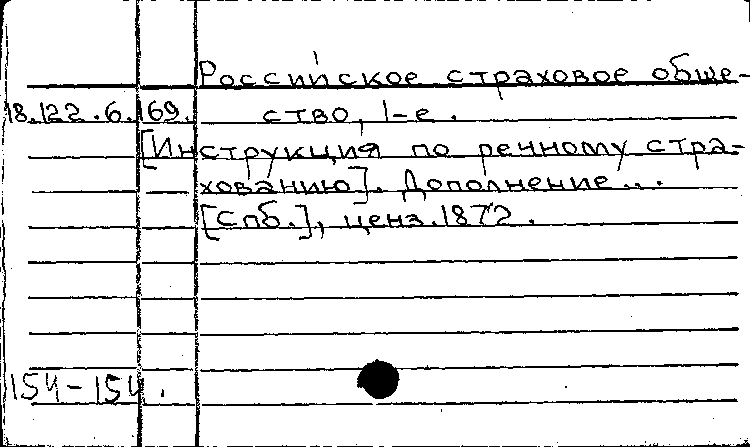 Российское страховое обще-
18.122.6.169. ство, 1-е.
[Инструкция по речному стра-
хованию]. Дополнение...
[Спб.], ценз. 1872.
154-154.